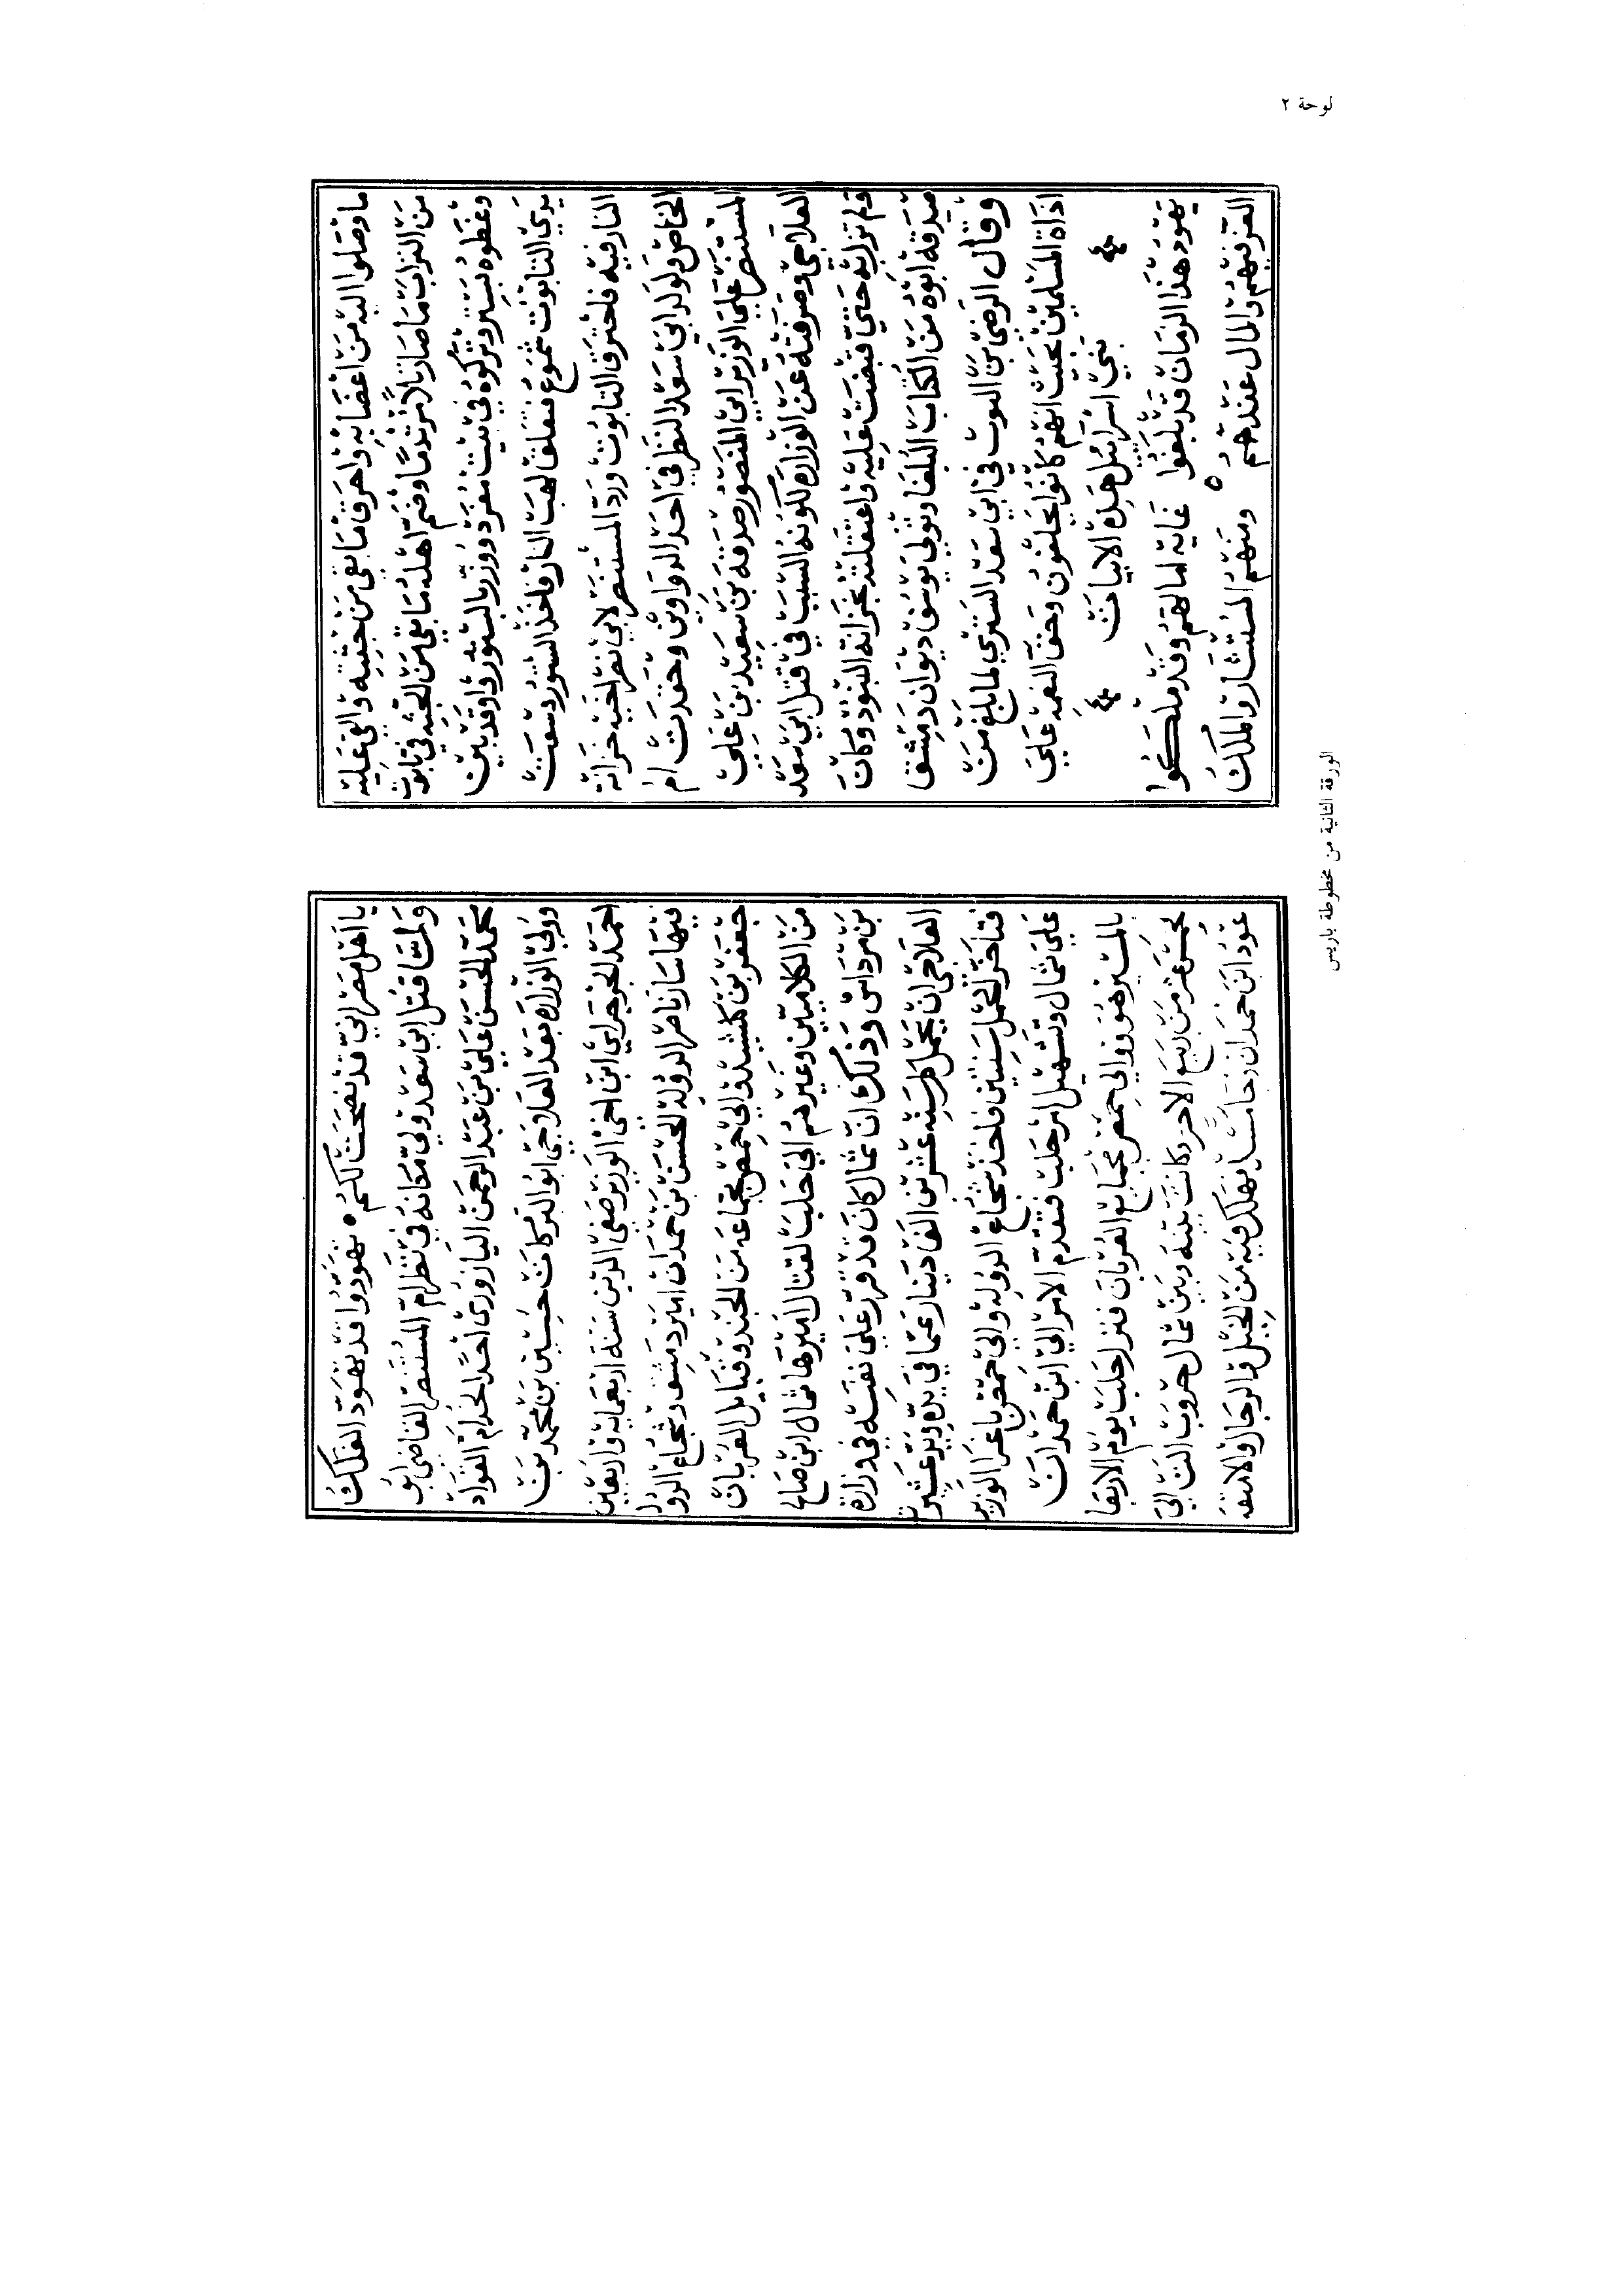 لوحة ٢
ما وصلوا اليه من اعضايه واحرق ما بقي من جثته والقي عليه
من التراب ما صار تلا مرتدما وضم اهله ما بقي من الجثه في تابوت
وغطوه بستر وتركوه في بيت مفرد وزر بالستور واوقد بين
يدي التابوت شموع فتعلق لهب النار فاخذ الستور وسعت
النار فيه فاحترق التابوت ورد المستنصر لابي نصر اخيه خزانة
الخاص ولولد ابي سعد النظر في احد الدواوين وحقدت ام
المستنصر على الوزير ابي المنصور صدقة بن سعيد بن علي
الفلاحي وصرفته عن الوزاره لكونه السبب في قتل ابي سعد
ولم تزل به حتى قبضت عليه واعتقلته بخزانة البنود وكان
صدقة ابوه من الكتاب البلغا وتولي ديوان دمشق
وقال الرضي بن البوب في ابي سعد التستري لما بلغ من
اذاة المسلمين بحيث انهم كانوا يحلفون وحق النعمه على
بني اسرائيل هذه الابيات
يهود هذا الزمان قد بلغوا غاية امالهم وقد ملكوا
العز فيهم والمال عندهم ومنهم المستشار والملك
الورقة الثانية من مخطوطة باريس
يا اهل مصر اني قد نصحت لكم تهودوا قد تهود الفلك
ولما قتل ابي سعد ولي مكانه في نظر ام المستنصر القاضي ابو
محمد الحسن بن علي بن عبد الرحمن اليازوري احد الخدام القواد
وولي الوزاره بعد الفلاحي ابو البركات حسين بن محمد بن
احمد الجرجراي ابن اخي الوزير صفي الدين سنة اربعمايه واربعين
فيها سار ناصر الدولة الحسن بن حمدان امير دمشق وشجاع الدوله
جعفر بن كليد والي حمص بجماعه من الجند وقبايل العربان
من الكلابيين وغيرهم الي حلب لقتال اميرها ثمال ابن صالح
بن مرداس وذلك ان ثمال كان قد قرر على نفسه في وزارة
الفلاحي ان يحمل كل سنه عشرين الف دينار عما في يده ويد عشيرته
فتاخر الحمل سنتين فاخذ شجاع الدوله والي حمص باغرا الوزير
على ثمال وتسهيل امر حلب فتقدم الامر الي ابن حمدان
بالمسير هو ووالي حمص بجمايع العربان فنزل حلب يوم الاربعا
لخمس عشر من ربيع الاخر وكانت بينه وبين ثمال حروب الت الي
عود ابن حمدان خاسيا بهلك فيه من الخيل والرجال والامتعه